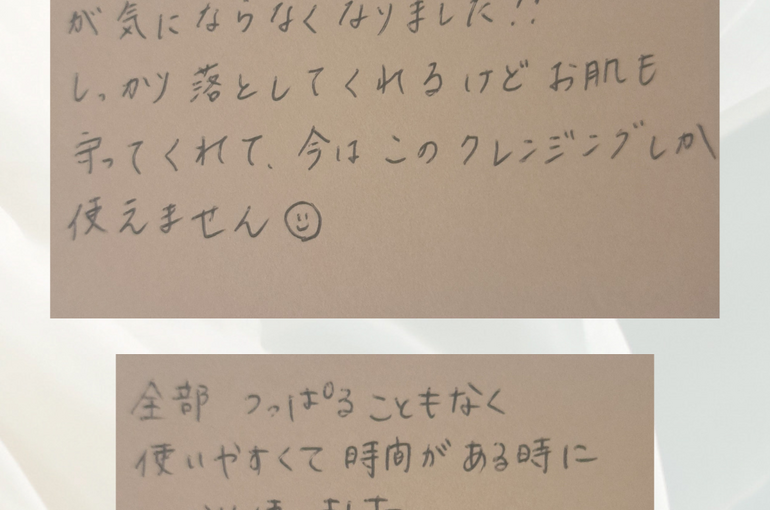 が気にならなくなりました!!
しっかり落としてくれるけどお肌も
守ってくれて、今はこのクレンジングしか
使えません
全部 つっぱることもなく
使いやすくて時間がある時に
ました